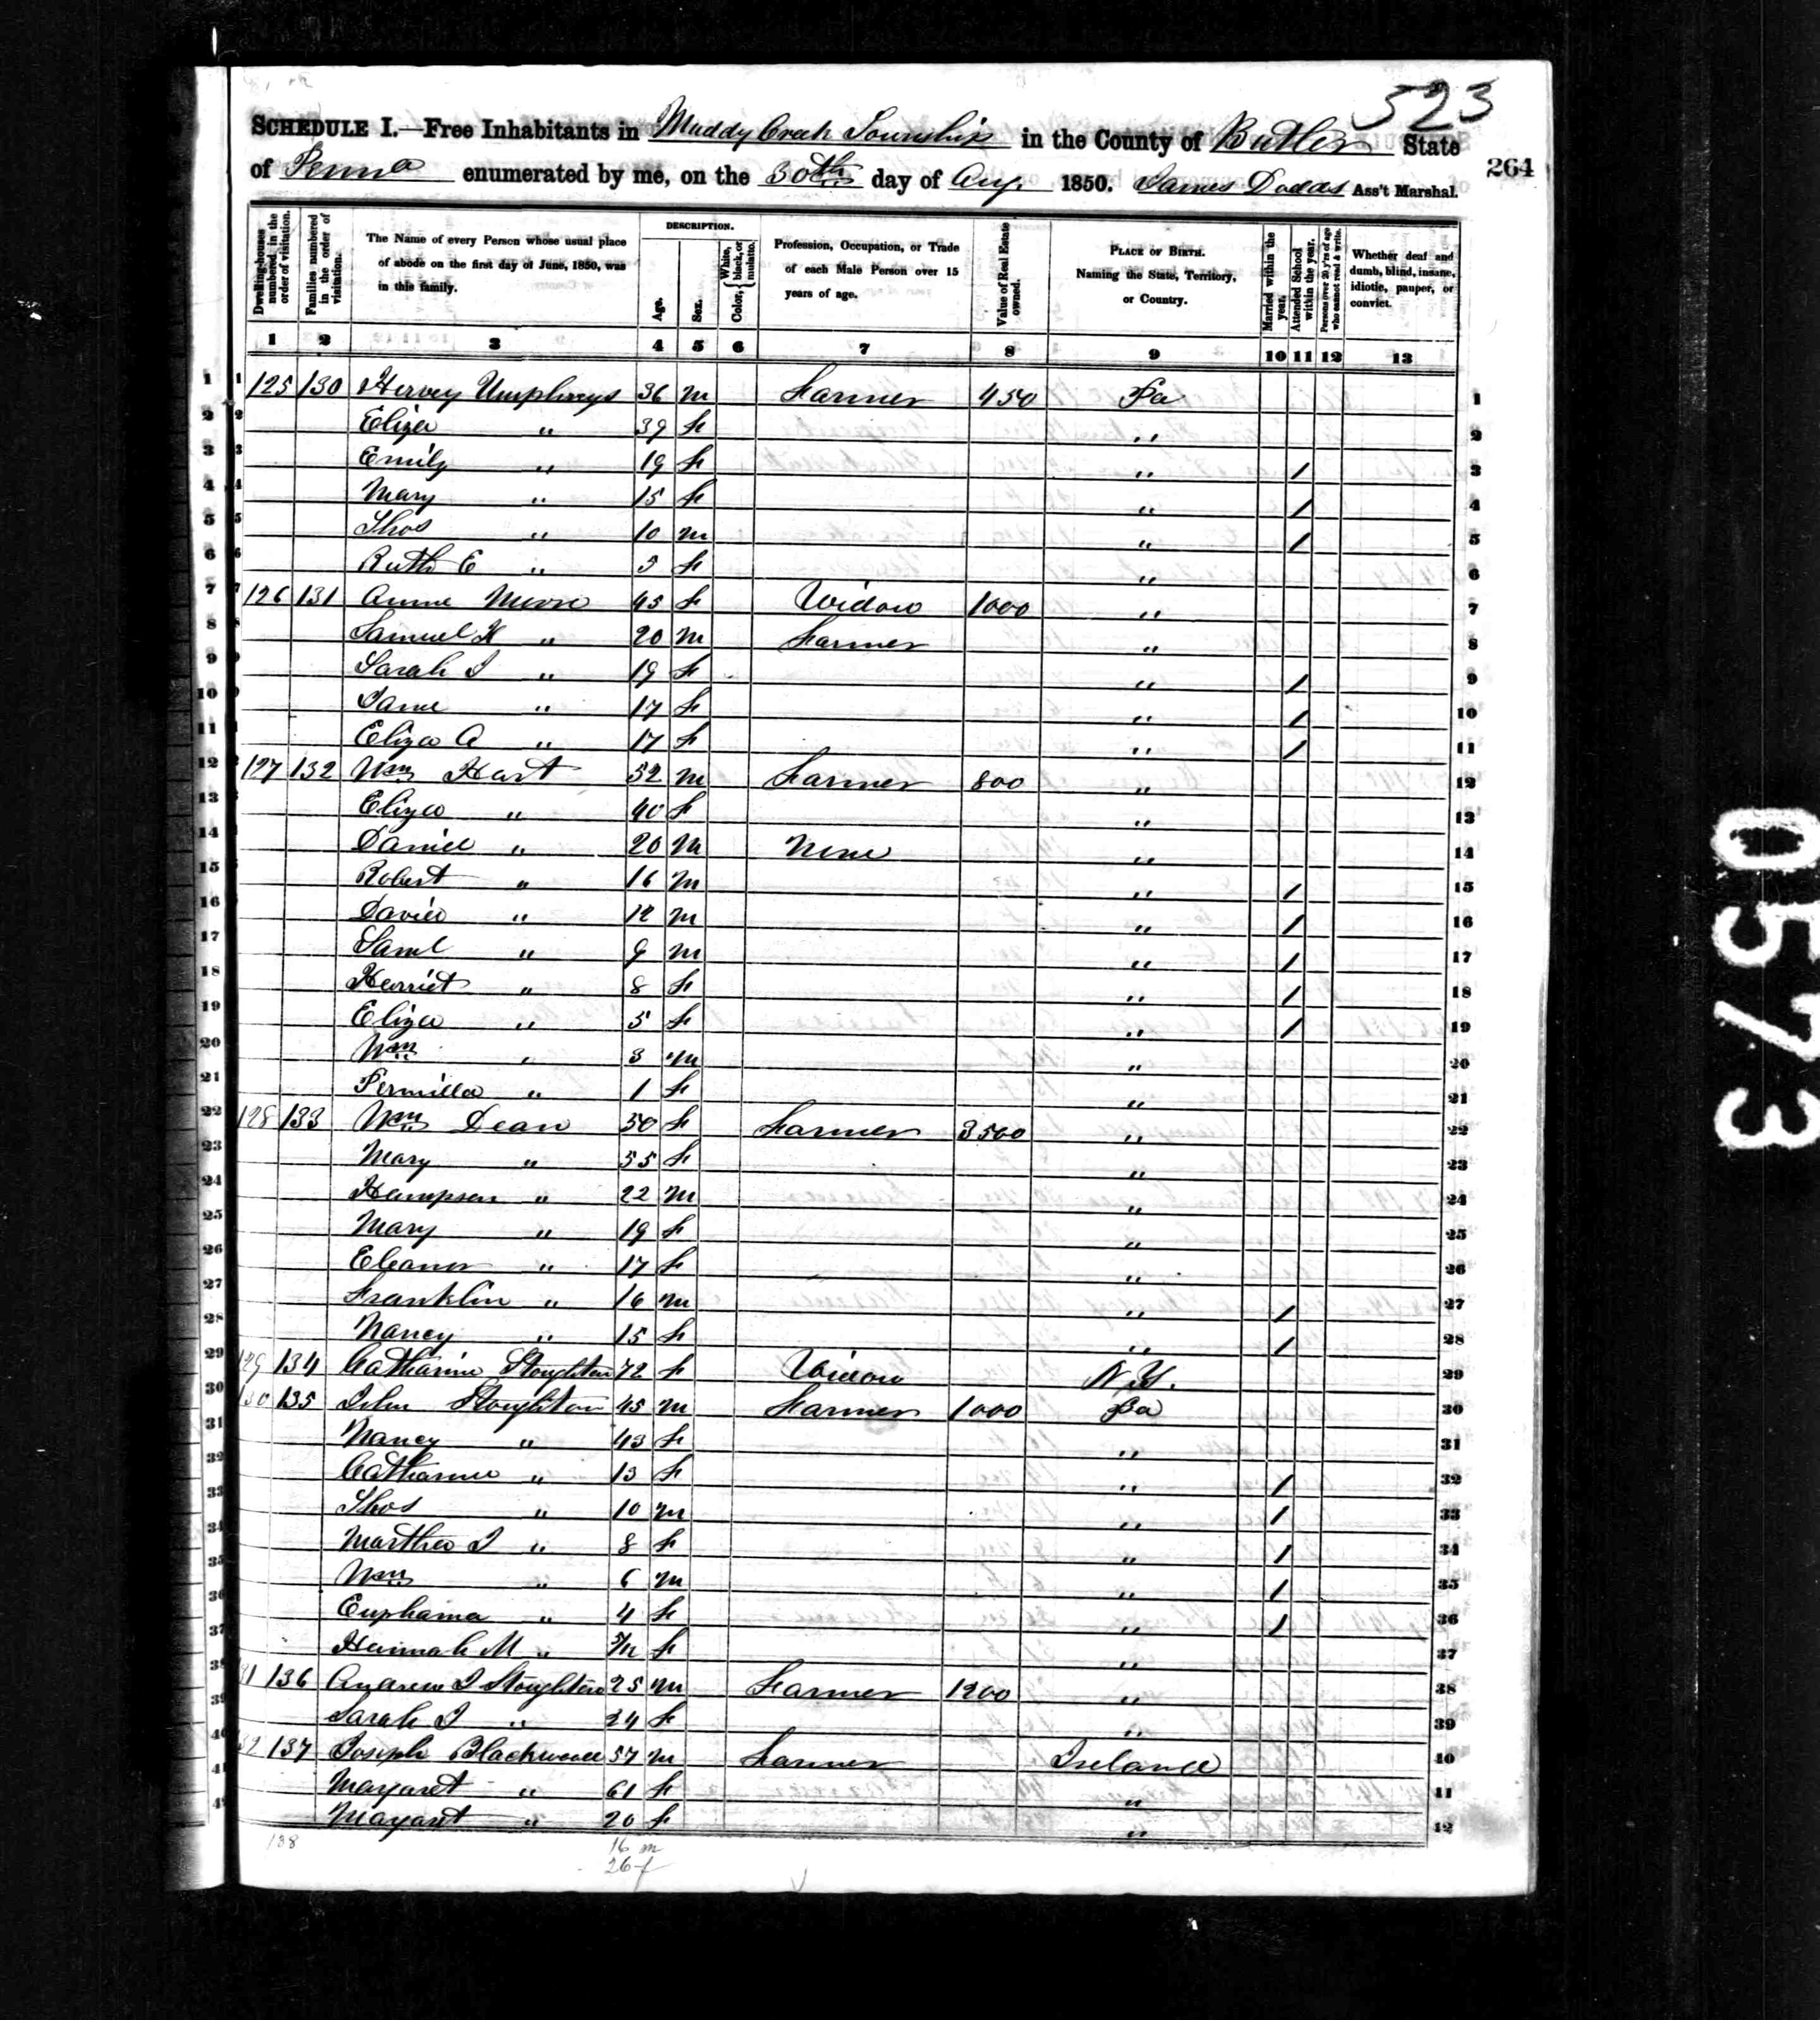 523
SCHEDULE I.—Free Inhabitants in Muddy Creek Township in the County of Butler State
of Penna enumerated by me, on the 30th day of Aug. 1850. James Dodds Ass't Marshal.
264
Dwelling-houses numbered in the order of visitation.
Families numbered in the order of visitation.
The Name of every Person whose usual place of abode on the first day of June, 1850, was in this family.
DESCRIPTION.
Age.
Sex.
Color, { White, black, or mulatto.
Profession, Occupation, or Trade of each Male Person over 15 years of age.
Value of Real Estate owned.
PLACE OF BIRTH. Naming the State, Territory, or Country.
Married within the year.
Attended School within the year.
Persons over 20 y'rs of age who cannot read & write.
Whether deaf and dumb, blind, insane, idiotic, pauper, or convict.
1 2 3 4 5 6 7 8 9 10 11 12 13
1 125 130 Hervey Umphreys 36 m Farmer 450 Pa 1
2 Eliza " 39 f " 2
3 Emily " 19 f " / 3
4 Mary " 15 f " / 4
5 Thos " 10 m " / 5
6 Ruth E " 5 f " 6
7 126 131 Anne Moore 45 f Widow 1000 " 7
8 Samuel H " 20 m Farmer " 8
9 Sarah J " 19 f " / 9
10 Jane " 17 f " / 10
11 Eliza A " 17 f " / 11
12 127 132 Wm Hart 52 m Farmer 800 " 12
13 Eliza " 40 f " 13
14 Daniel " 20 m None " 14
15 Robert " 16 m " / 15
16 David " 12 m " / 16
17 Saml " 9 m " / 17
18 Harriet " 8 f " / 18
19 Eliza " 5 f " / 19
20 Wm " 3 m " 20
21 Permilla " 1 f " 21
22 128 133 Wm Dean 50 f Farmer 3500 " 22
23 Mary " 55 f " 23
24 Hampson " 22 m " 24
25 Mary " 19 f " 25
26 Eleanor " 17 f " 26
27 Franklin " 16 m " / 27
28 Nancy " 15 f " / 28
29 129 134 Catharine Stoughton 72 f Widow N.Y. 29
30 130 135 John Stoughton 45 m Farmer 1000 Pa 30
31 Nancy " 43 f " 31
32 Catharine " 13 f " / 32
33 Thos " 10 m " / 33
34 Martha J " 8 f " / 34
35 Wm " 6 m " / 35
36 Euphama " 4 f " / 36
37 Hannah M " f " 37
38 31 136 Andrew J Stoughton 25 m Farmer 1200 " 38
39 Sarah J " 24 f " 39
40 32 137 Joseph Blackwood 57 m Farmer Ireland 40
41 Margaret " 61 f " 41
4 Margaret " 20 f " 42
138 16 m
26 f
0573